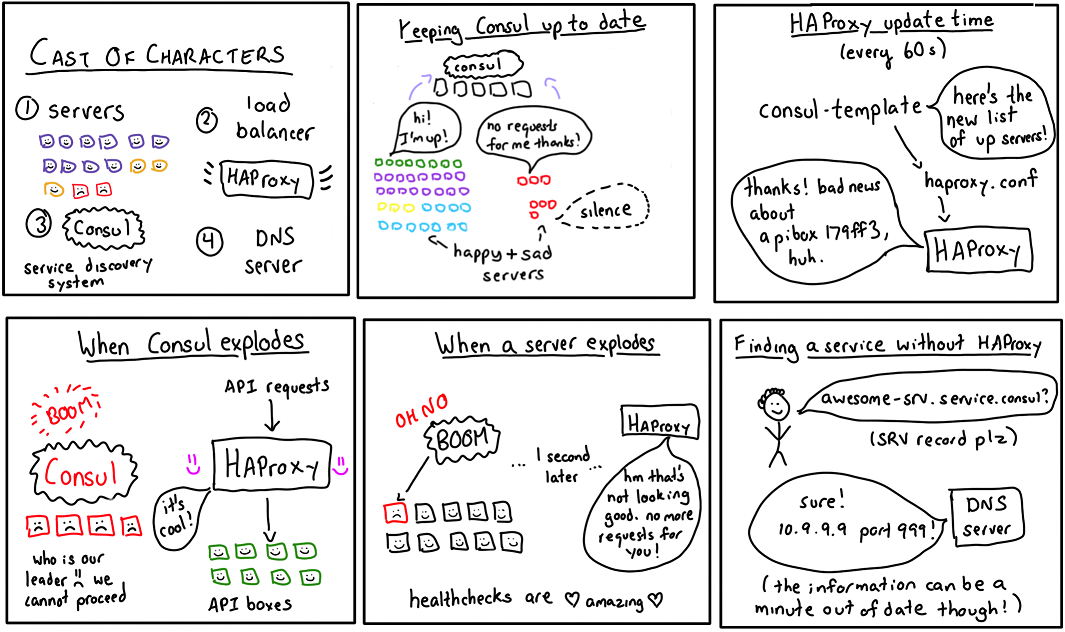 CAST OF CHARACTERS
① servers
② load
balancer
HAProxy
③ Consul
service discovery
system
④ DNS
server
Keeping Consul up to date
consul
hi!
I'm up!
no requests
for me thanks!
silence
happy + sad
servers
HAProxy update time
(every 60s)
consul-template
here's the
new list
of up servers!
haproxy.conf
thanks! bad news
about
apibox 179ff3,
huh.
HAProxy
When Consul explodes
BOOM
Consul
who is our
leader we
cannot proceed
API requests
HAProxy
it's
cool!
API boxes
When a server explodes
OH NO
BOOM
... 1 second
later ...
HAProxy
hm that's
not looking
good. no more
requests for
you!
healthchecks are ♡ amazing ♡
Finding a service without HAProxy
awesome-srv.service.consul?
(SRV record plz)
sure!
10.9.9.9 port 999!
DNS
server
(the information can be a
minute out of date though!)